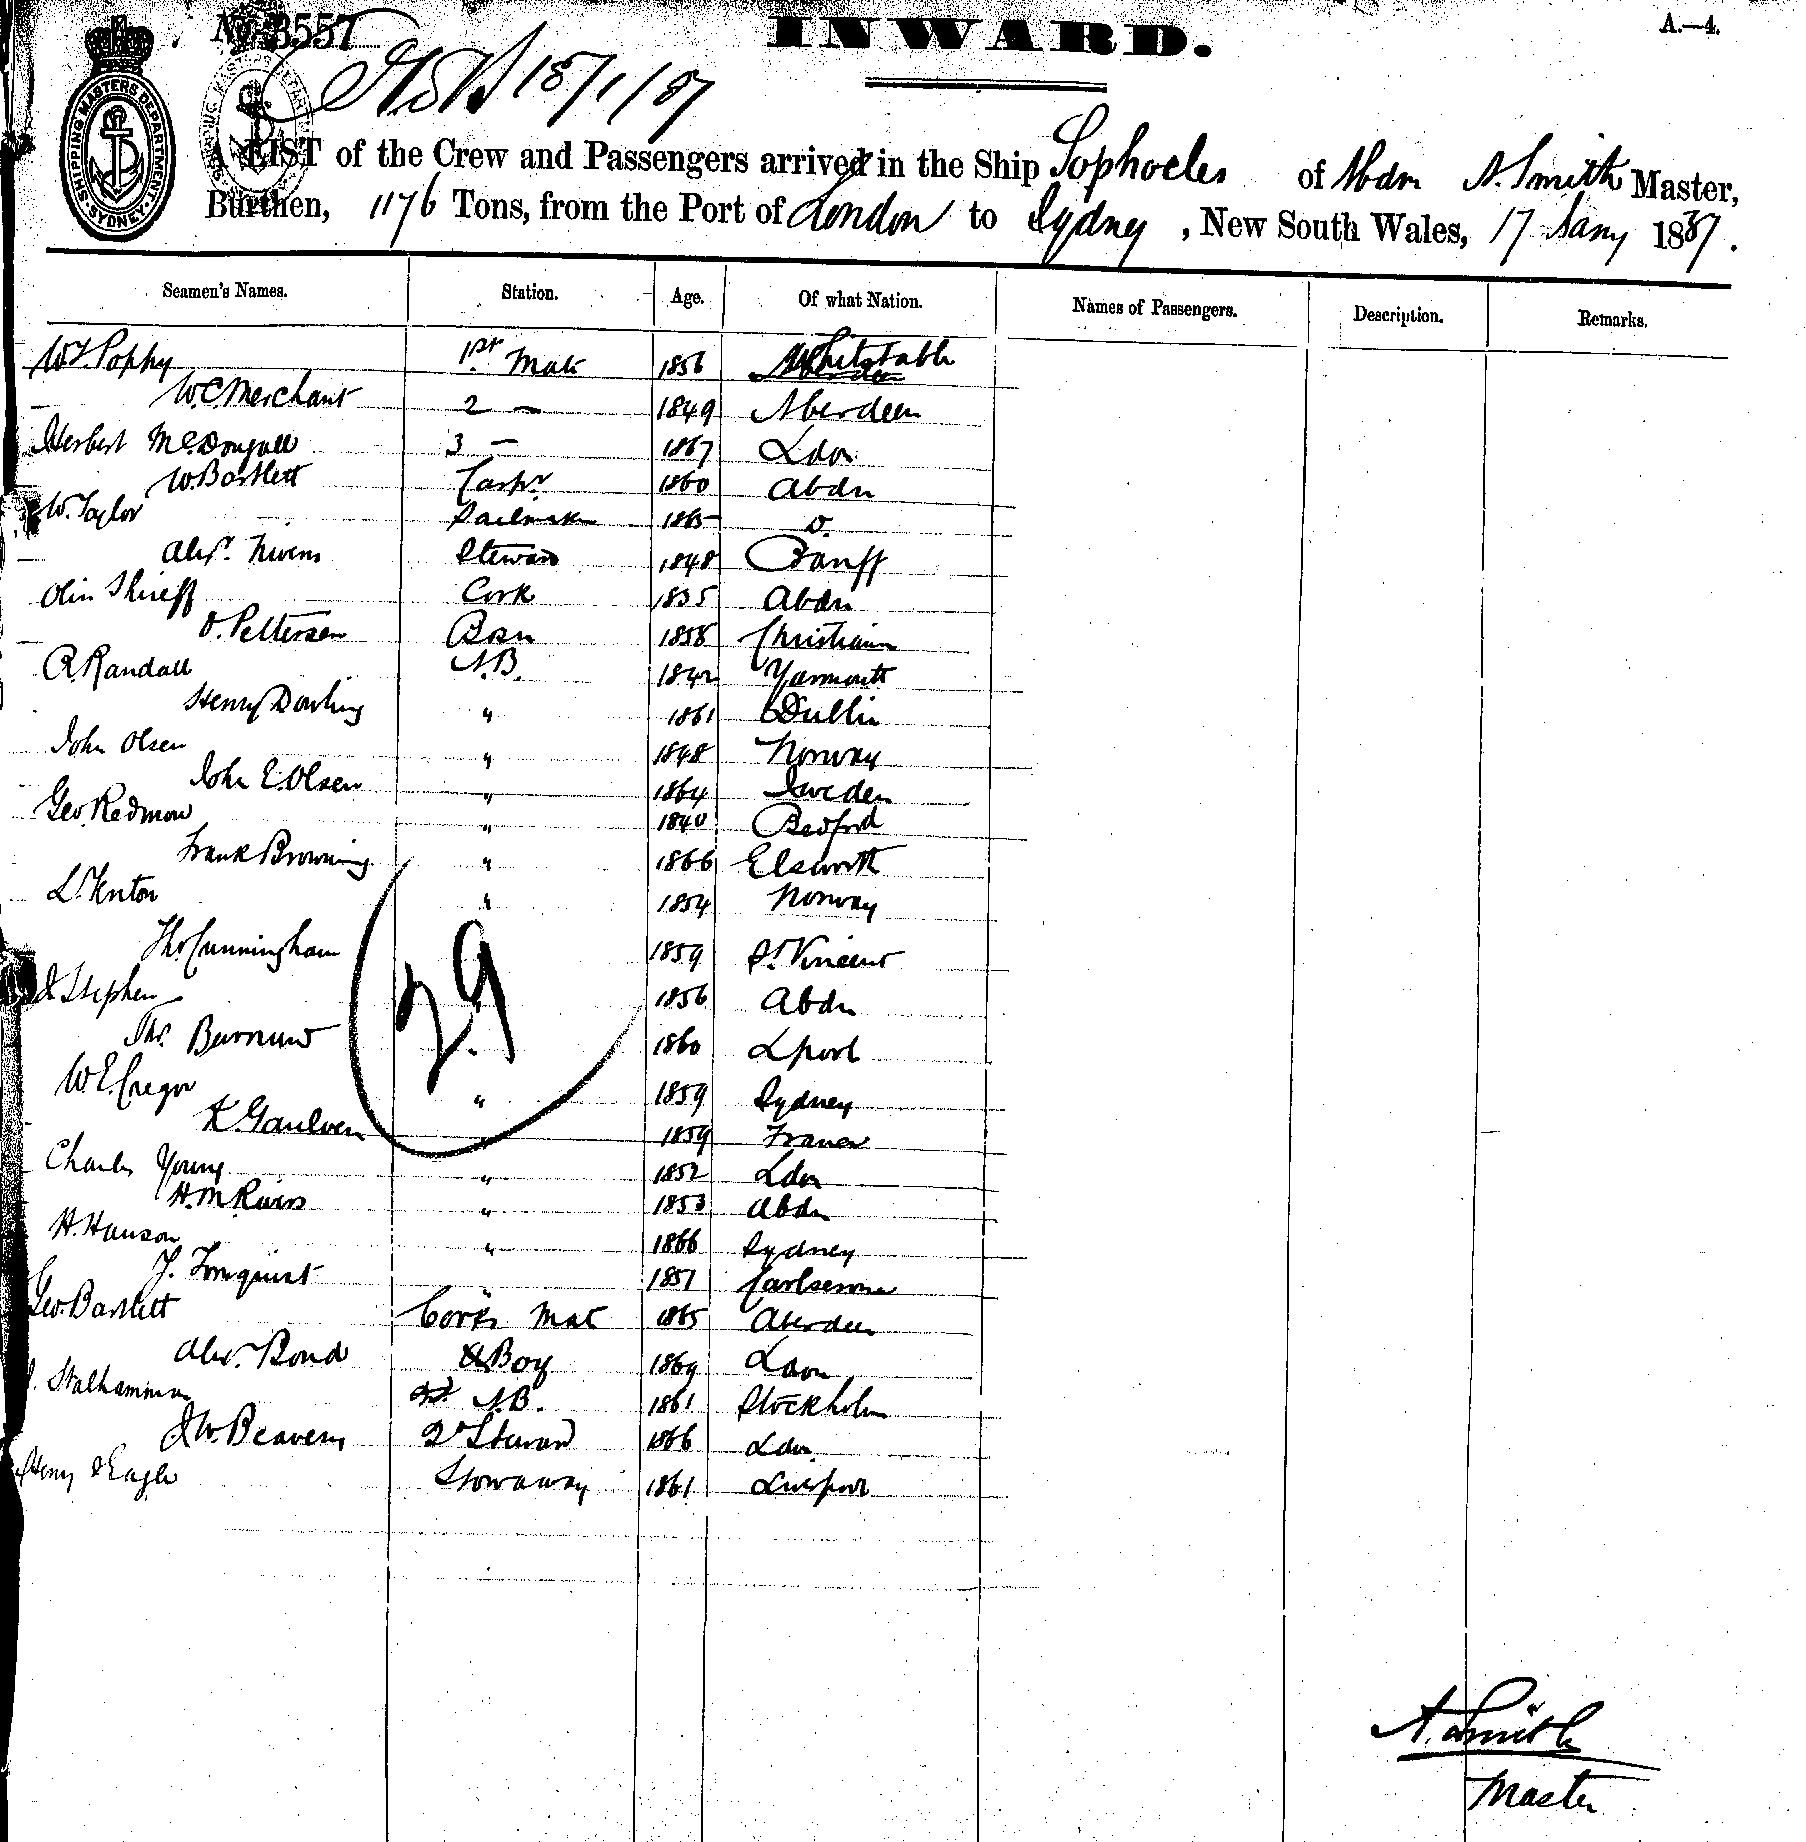 No 3557
INWARD.
A.—4.
18/1/87
SHIPPING MASTERS DEPARTMENT SYDNEY
A LIST of the Crew and Passengers arrived in the Ship Sophocles of Abdn A. Smith Master,
Burthen, 1176 Tons, from the Port of London to Sydney, New South Wales, 17 Jany 1887.
Seamen's Names. Station. Age. Of what Nation. Names of Passengers. Description. Remarks.
Poppy 1st Mate 1856 Whitstable
W.C. Merchant 2 — 1849 Aberdeen
Herbert McDougall 3 — 1867 Ldon
W. Bartlett Carpr 1860 Abdn
W. Taylor Sailmaker 1865 Do
Alexr. Nivens Steward 1848 Banff
Shireff Cook 1835 Abdn
O. Pettersen Bosn 1858 Christiania
R. Randall A.B. 1842 Yarmouth
Henry Dowling " 1861 Dublin
John Olsen " 1848 Norway
John E. Olsen " 1864 Sweden
Geo. Redmon " 1840 Bedford
Frank Browning " 1866 Elsworth
L. Fenton " 1854 Norway
Thos Cunningham 1859 St. Vincent
29
J Stephen 1856 Abdn
Thos. 1860 Lpool
W.E. Cregor " 1859 Sydney
K. Gaulven " 1859 France
Charles Young " 1852 Ldon
H. M. " 1853 Abdn
H. Hanson " 1866 Sydney
J. Tornquist 1857
Geo. Bartlett Cooks Mate 1865 Aberdeen
Alexr. Bond Boy 1869 Ldon
Stalhamman A.B. 1861 Stockholm
J.W. Beavens 2d Steward 1866 Ldon
Henry J Eagle Stowaway 1861 Liverpool
A. Smith
Master